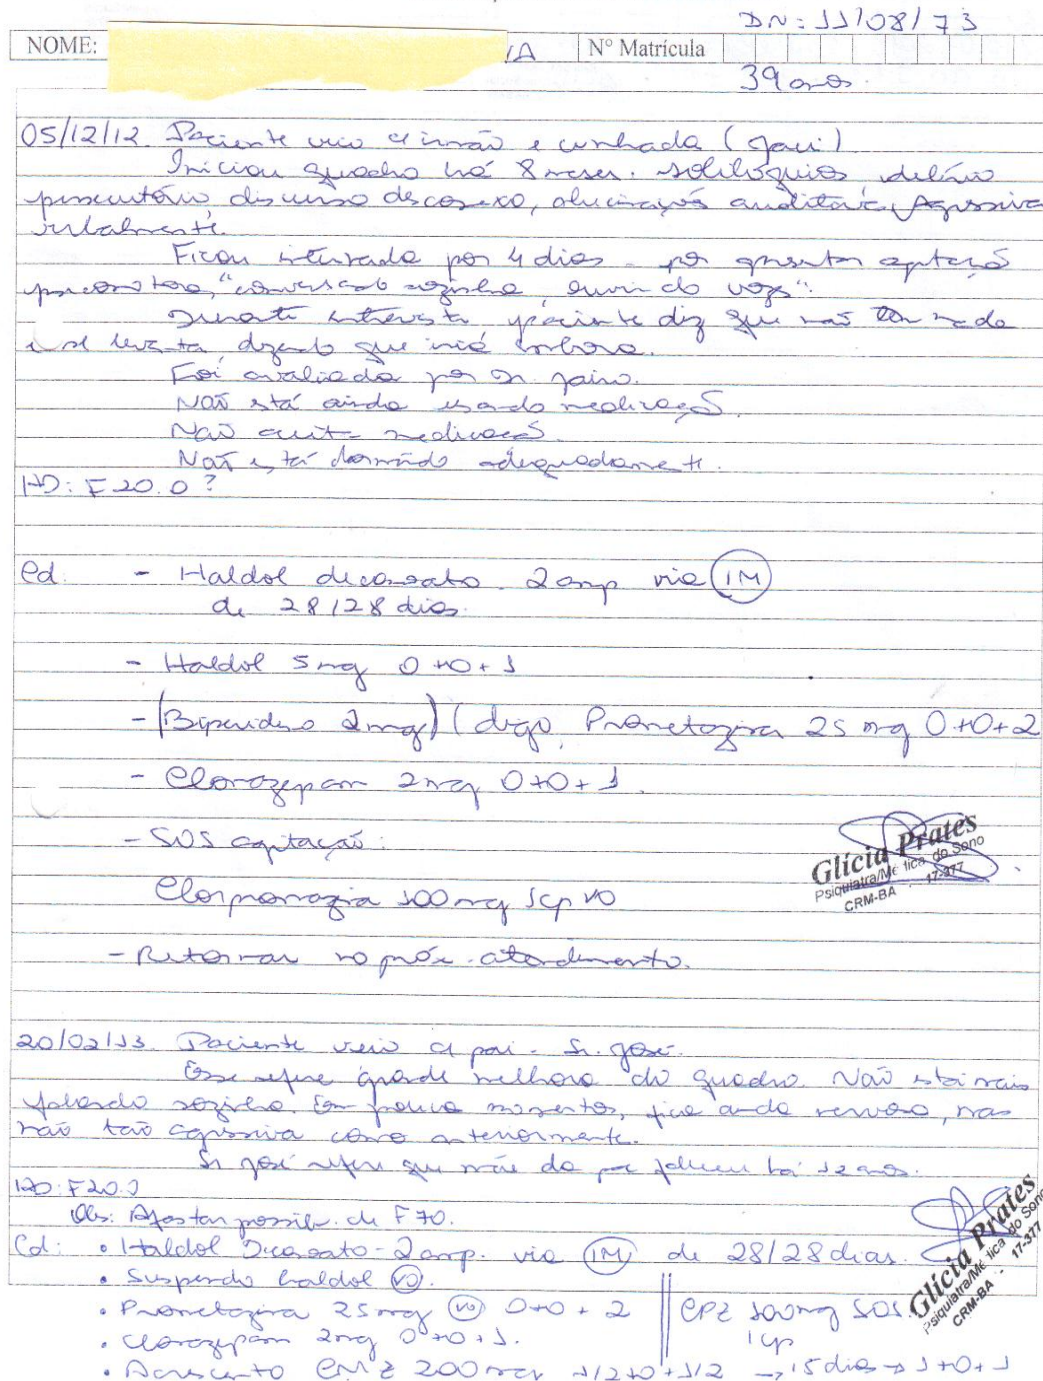 DN: 11/08/73
NOME: VA Nº Matrícula
39 anos.
05/12/12. Paciente veio c/ irmão e cunhada (Jaci)
Iniciou quadro há 8 meses. solilóquios, delírio
persecutório discurso desconexo, alucinações auditivas, Agressiva
verbalmente.
Ficou internada por 4 dias - por apresentar agitação
psicomotora, "conversando sozinha, ouvindo vozes".
Durante entrevista, paciente diz que não tem nada
e se levanta, dizendo que irá embora.
Foi avaliada por Dr. Jairo.
Não está ainda usando medicação.
Não aceita medicação.
Não está dormindo adequadamente.
HD: F20.0?
Cd. - Haldol decanoato 2 amp via IM
de 28/28 dias.
- Haldol 5 mg 0+0+1
- (Biperideno 2mg) (digo, Prometazina 25 mg 0+0+2
- Clonazepam 2mg 0+0+1.
- SOS agitação:
Clorpromazina 100mg 1cp VO
Glícia Prates
Psiquiatra/Mé tica do Sono
CRM-BA - 17-377
- Retornar no próx. atendimento.
20/02/13. Paciente veio c/ pai - Sr. José.
Esse refere grande melhora do quadro. Não está mais
falando sozinha. Em poucos momentos, fica ainda nervosa, mas
não tão agressiva como anteriormente.
Sr José refere que mãe da pac faleceu há 12 anos.
HD: F20.0
Obs: Afastar possib. de F70.
Cd: • Haldol Decanoato - 2 amp. via IM de 28/28 dias.
• Suspendo haldol VO.
• Prometazina 25mg VO 0+0+2 || CPZ 100mg SOS.
• Clonazepam 2mg 0+0+1. 1 cp
• Acrescento CMZ 200mg 1/2+0+1/2 → 15 dias → 1+0+1
Glícia Prates
Psiquiatra/Mé tica do Sono
CRM-BA - 17-377